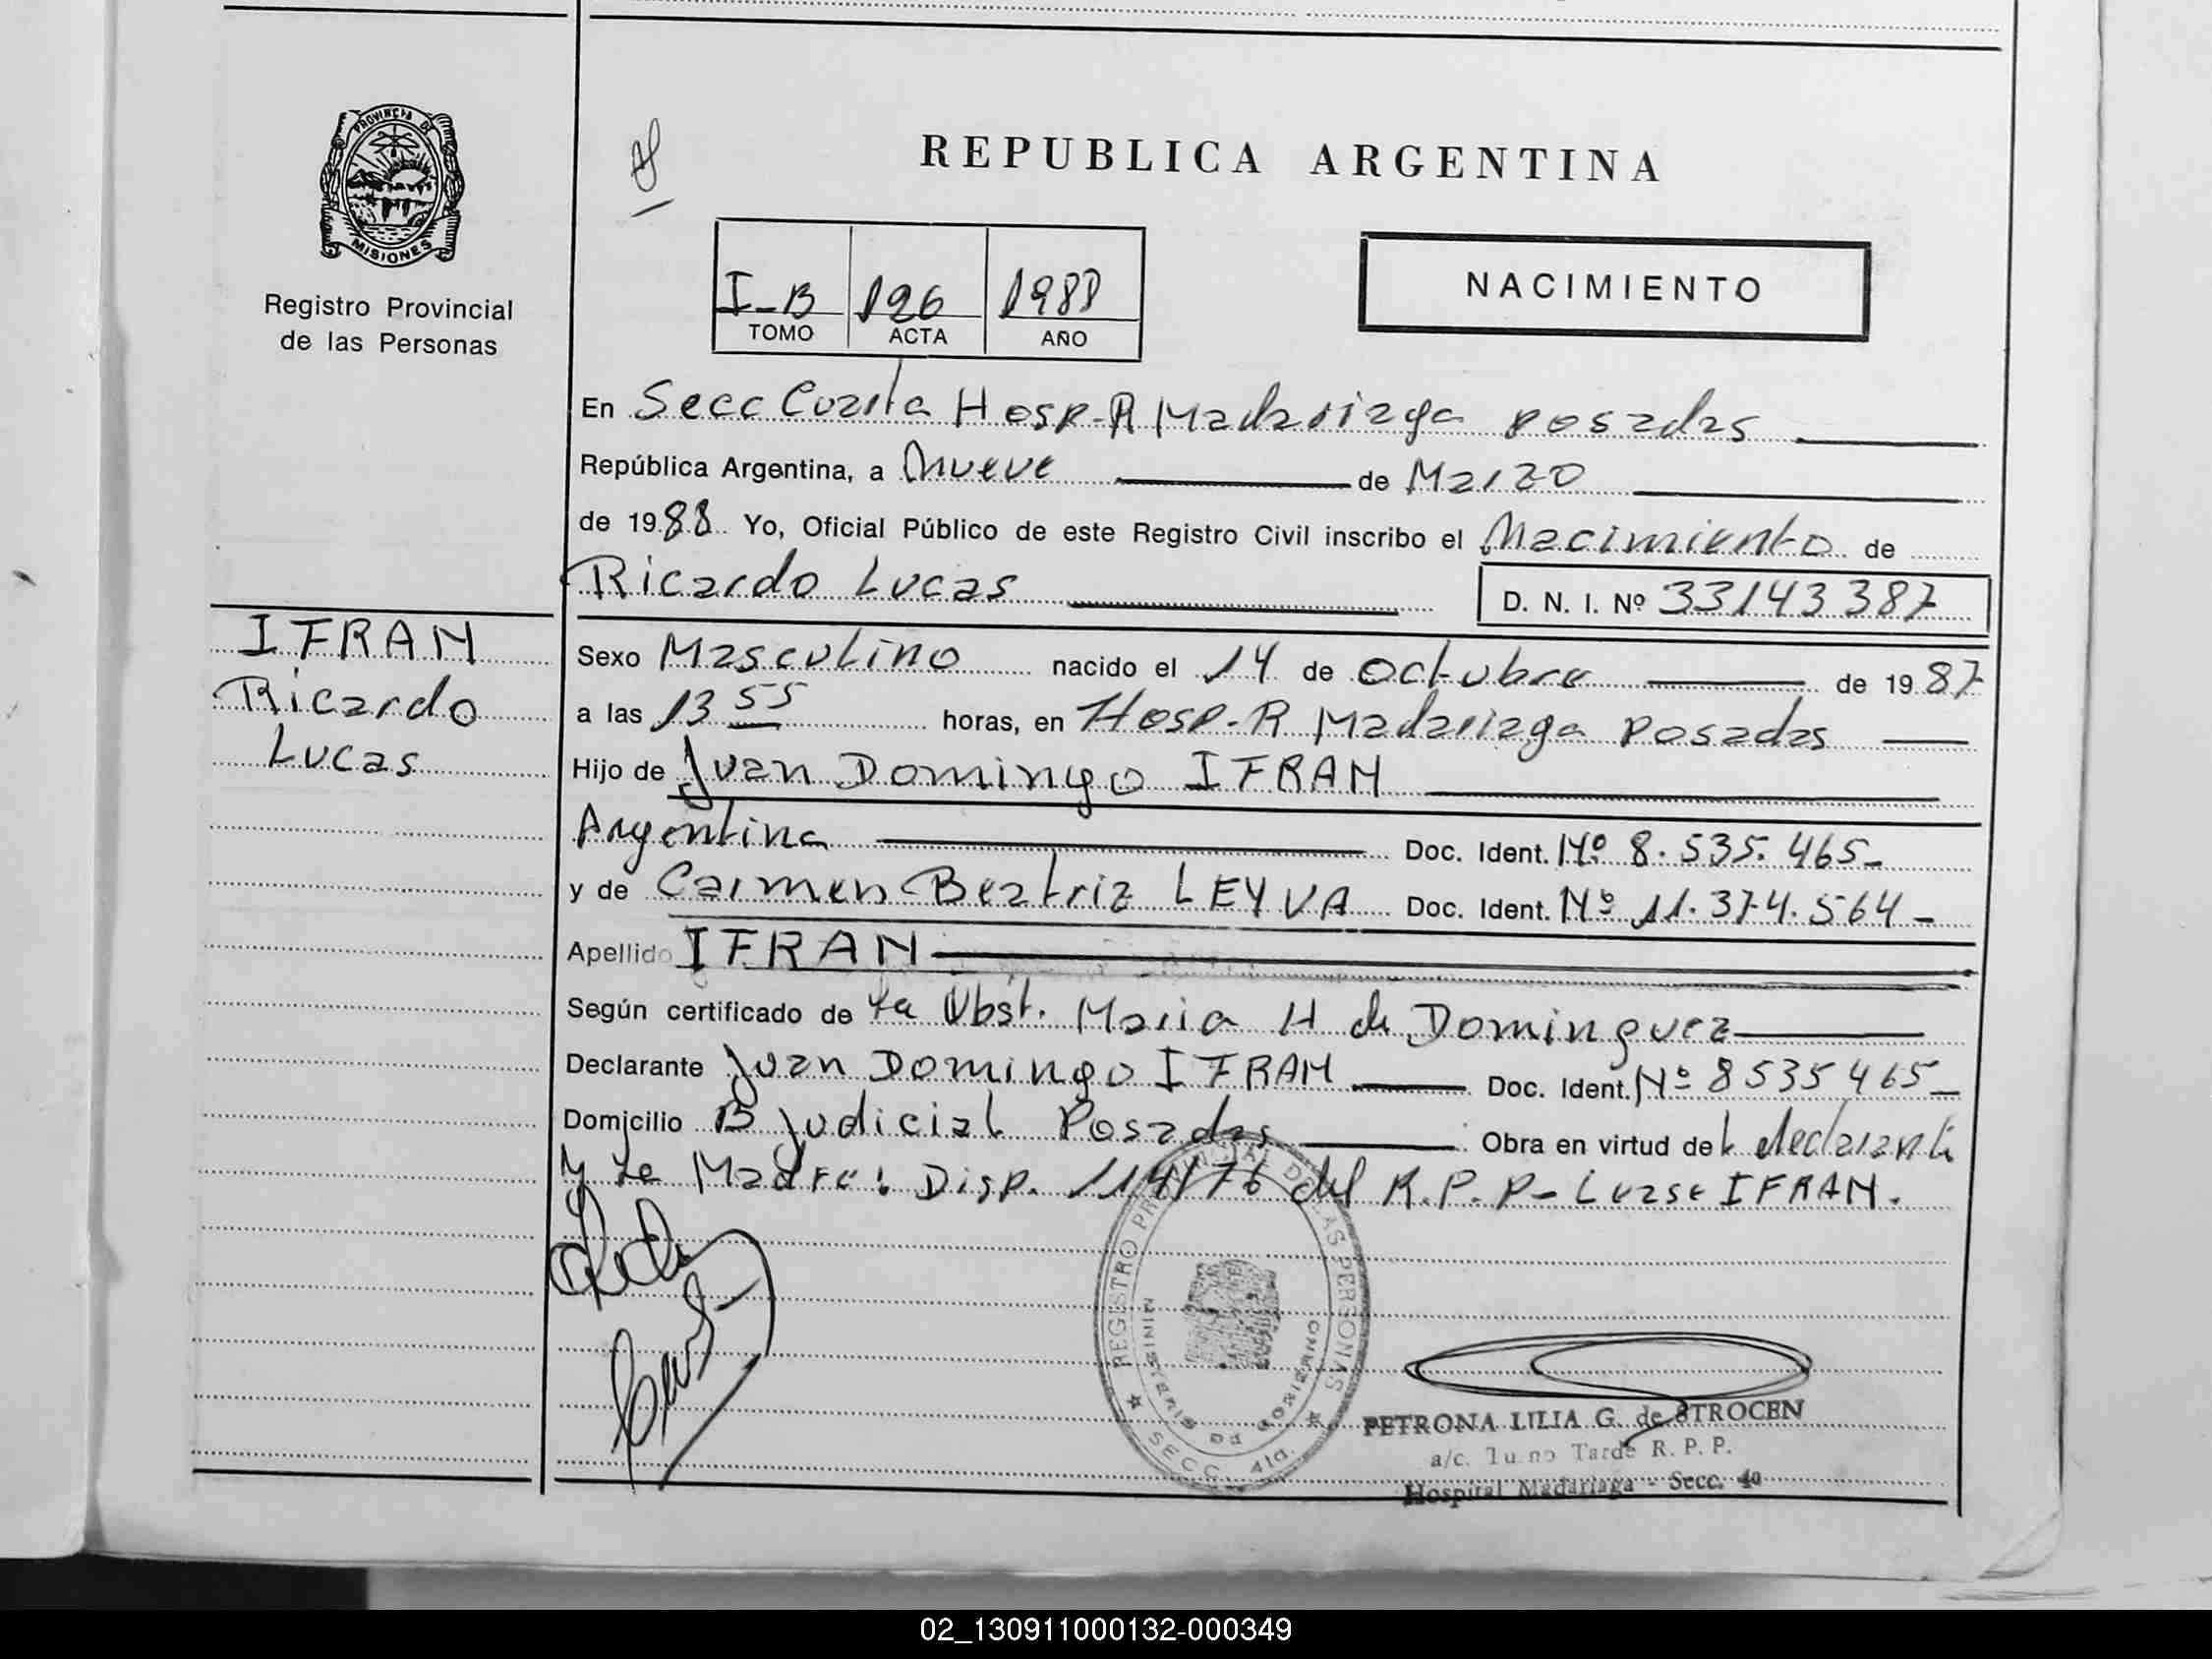 PROVINCIA DE
MISIONES
Registro Provincial
de las Personas
REPUBLICA ARGENTINA
I-B 126 1988
TOMO ACTA AÑO
NACIMIENTO
En Secc Cuarta Hosp-R Madariaga Posadas
República Argentina, a Nueve de Marzo
de 1988 Yo, Oficial Público de este Registro Civil inscribo el Nacimiento de
Ricardo Lucas D. N. I. Nº 33143387
IFRAN
Ricardo
Lucas
Sexo Masculino nacido el 14 de octubre de 1987
a las 13 55 horas, en Hosp-R Madariaga Posadas
Hijo de Juan Domingo IFRAN
Argentina Doc. Ident. Nº 8.535.465-
y de Carmen Beatriz LEYVA Doc. Ident. Nº 11.374.564-
Apellido IFRAN
Según certificado de la Obst. Maria H de Dominguez
Declarante Juan Domingo IFRAN Doc. Ident. Nº 8535465-
Domicilio B Judicial Posadas Obra en virtud del declarante
y la Madre: Disp. 114/76 del R.P.P- Lease IFRAN.
REGISTRO PROVINCIAL DE LAS PERSONAS
MINISTERIO DE GOBIERNO
SECC. 4ta.
PETRONA LILIA G. de STROCEN
a/c. Tu no Tarde R. P. P.
Hospital Madariaga - Secc. 4a
02_130911000132-000349